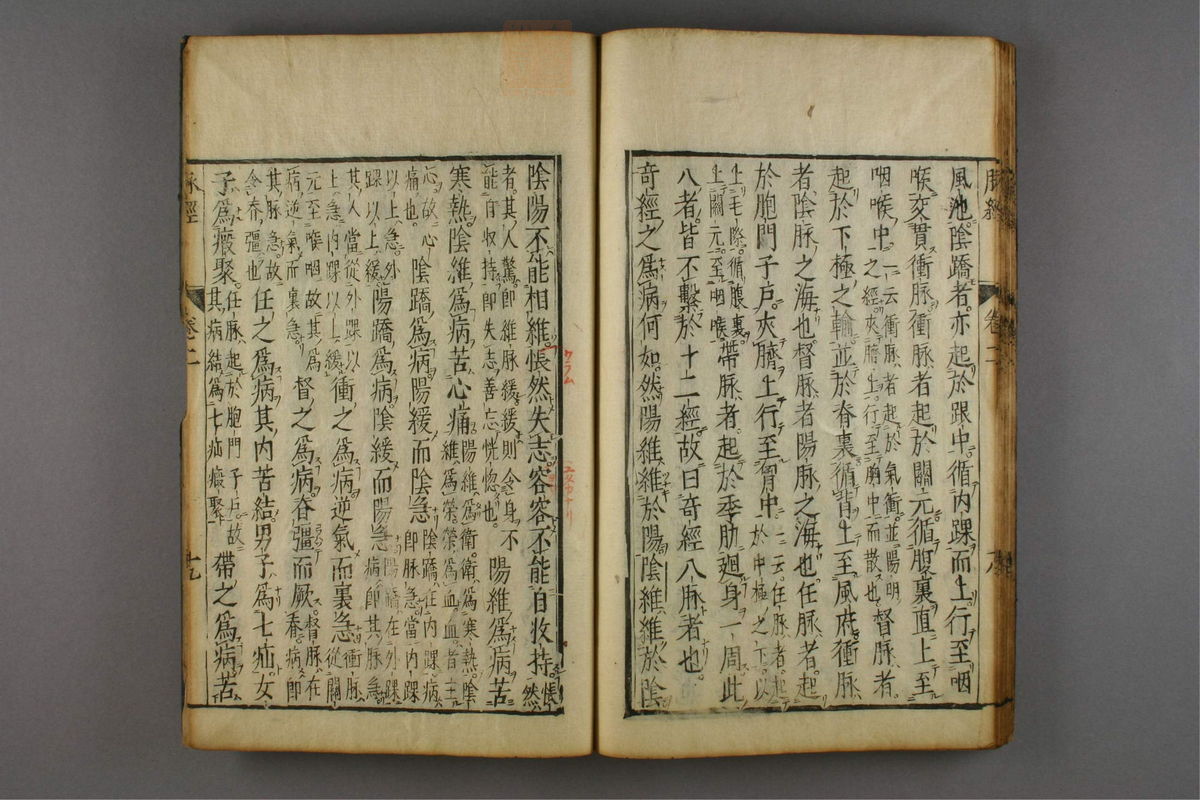 風池陰蹻者亦起於跟中循内踝而上行至咽
喉交貫衝脉衝脉者起於關元循腹裏直上至
咽喉中一云衝脉者起於氣衝並陽明之經夾臍上行至胸中而散也督脉者
起於下極之輸並於脊裏循背上至風府衝脉
者陰脉之海也督脉者陽脉之海也任脉者起
於胞門子戸夾臍上行至胷中一云任脉者起於中極之下以
上毛際循腹裏上關元至咽喉帶脉者起於季肋廻身一周此
八者皆不繫於十二經故曰奇經八脉者也
奇經之爲病何如然陽維維於陽陰維維於陰
脉經 卷二 八
陰陽不能相維悵然失志容容不能自收持悵然
者其人驚即維脉緩緩則令身不能自收持即失志善忘恍惚也陽維爲病苦
寒熱陰維爲病苦心痛陽維爲衛衛爲寒熱陰維爲榮榮爲血血者主
心故心痛也陰蹻爲病陽緩而陰急陰蹻在内踝病即脉急當内踝
以上急外踝以上緩陽蹻爲病陰緩而陽急陽蹻在外踝病即其脉急
其人當從外踝以上急内踝以上緩衝之爲病逆氣而裏急衝脉從關
元至喉咽故其爲病逆氣而裏急督之爲病脊彊而厥督脉在脊病即
其脉急故令脊彊也任之爲病其内苦結男子爲七疝女
子爲瘕聚任脉起於胞門子戸故其病結爲七疝瘕聚帶之爲病苦
脉經 卷二 九
クラム